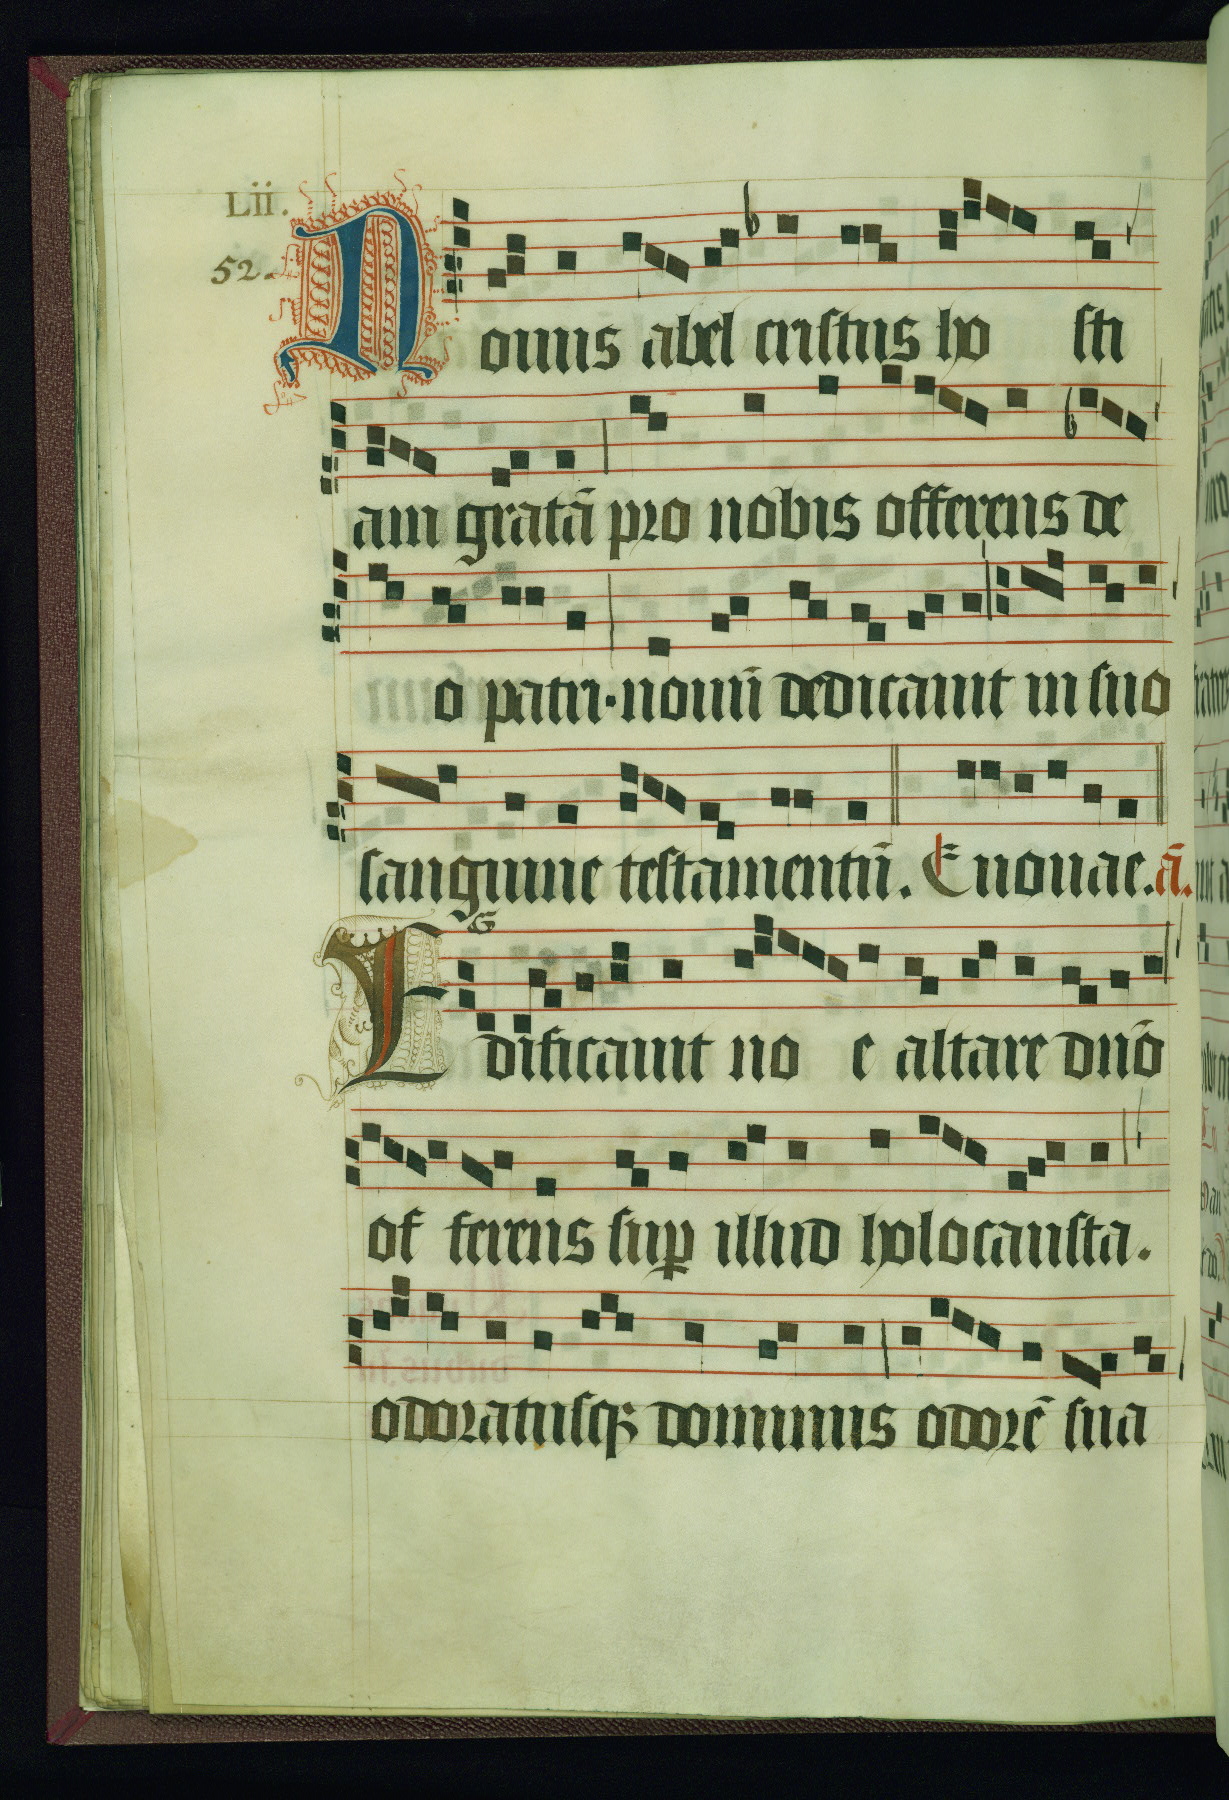 Lii.
52.
Nouus abel cristus ho sti
am gratā pro nobis offerens de
o patri·nouū dedicauit in suo
sanguine testamentū. Euouae. ā.
G
Edificauit no e altare dnō
of ferens sup illud holocausta.
odoratusq; dominus odorē sua